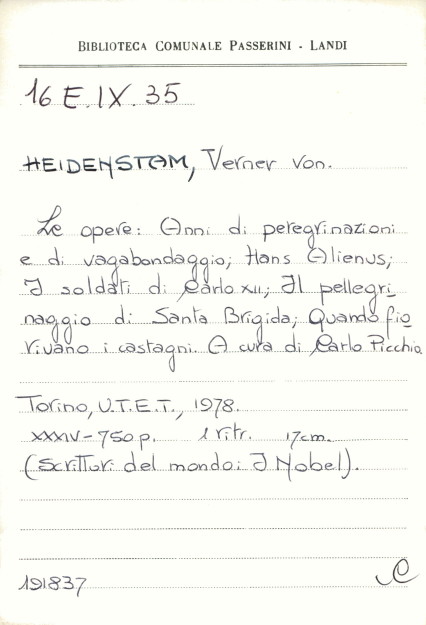 BIBLIOTECA COMUNALE PASSERINI - LANDI
16 E.IX.35
HEIDENSTAM, Verner von.
Le opere: Anni di peregrinazioni
e di vagabondaggio; Hans Alienus;
I soldati di Carlo XII; Il pellegri
naggio di Santa Brigida; Quando fio
rivano i castagni. A cura di Carlo Picchio
Torino, U.T.E.T., 1978.
XXXIV-750 p. 1 ritr. 17cm.
(Scrittori del mondo: I Nobel).
191837
C